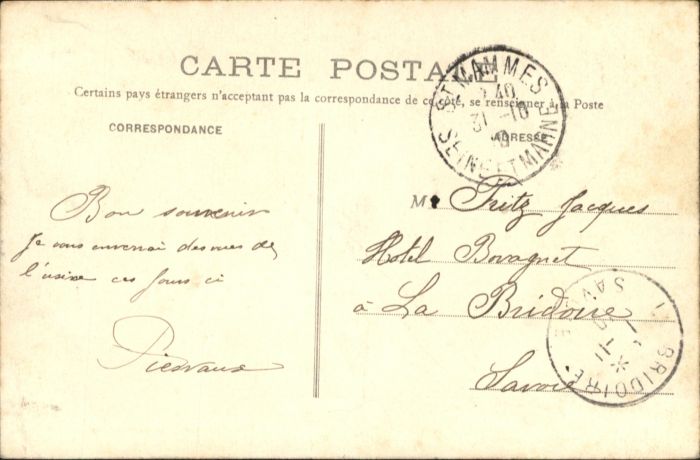 CARTE POSTALE
Certains pays étrangers n'acceptant pas la correspondance de ce côté, se renseigner à la Poste
CORRESPONDANCE
ADRESSE
ST MAMMES
SEINE ET MARNE
31 -10
Bon souvenir
Je vous enverrai des vues de
l'usine ces jours ci
M. Fritz Jacques
Hotel Bovagnet
à La Bridoire
Savoie
LA BRIDOIRE
SAVOIE